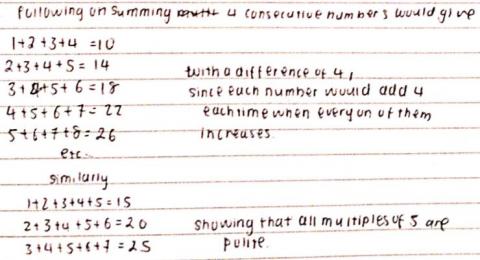 following on summing 4 consecutive numbers would give
1+2+3+4 = 10
2+3+4+5 = 14
with a difference of 4,
3+4+5+6 = 18
since each number would add 4
4+5+6+7 = 22
each time when every on of them
5+6+7+8 = 26
increases
etc..
similarly
1+2+3+4+5 = 15
2+3+4+5+6 = 20
showing that all multiples of 5 are
3+4+5+6+7 = 25
polite.